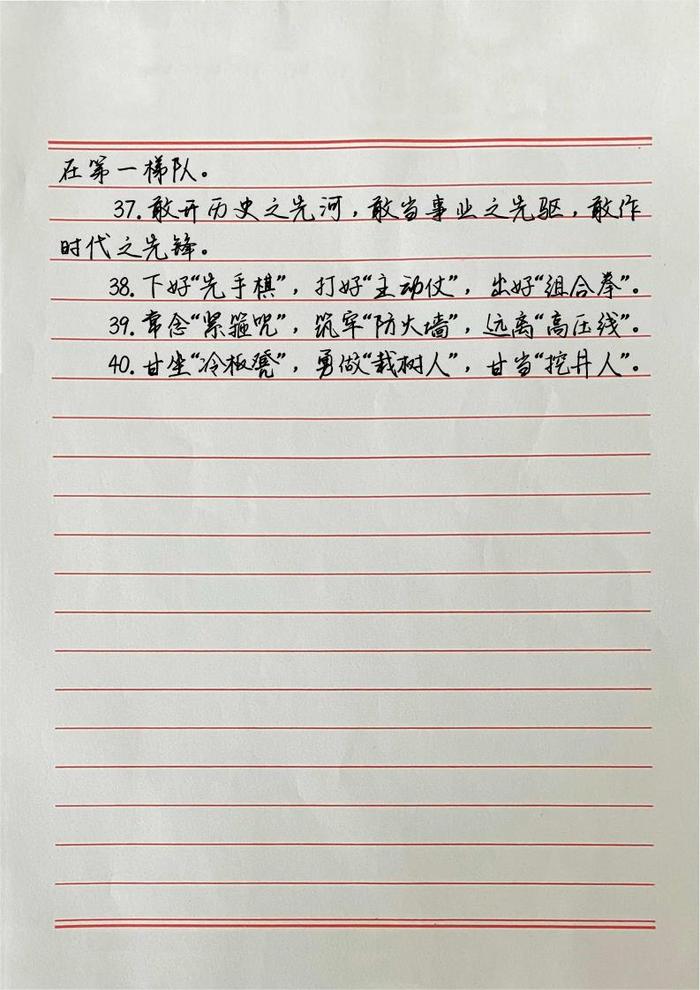 在第一梯队。
37.敢开历史之先河，敢当事业之先驱，敢作
时代之先锋。
38.下好“先手棋”，打好“主动仗”，出好“组合拳”。
39.常念“紧箍咒”，筑牢“防火墙”，远离“高压线”。
40.甘坐“冷板凳”，勇做“栽树人”，甘当“挖井人”。